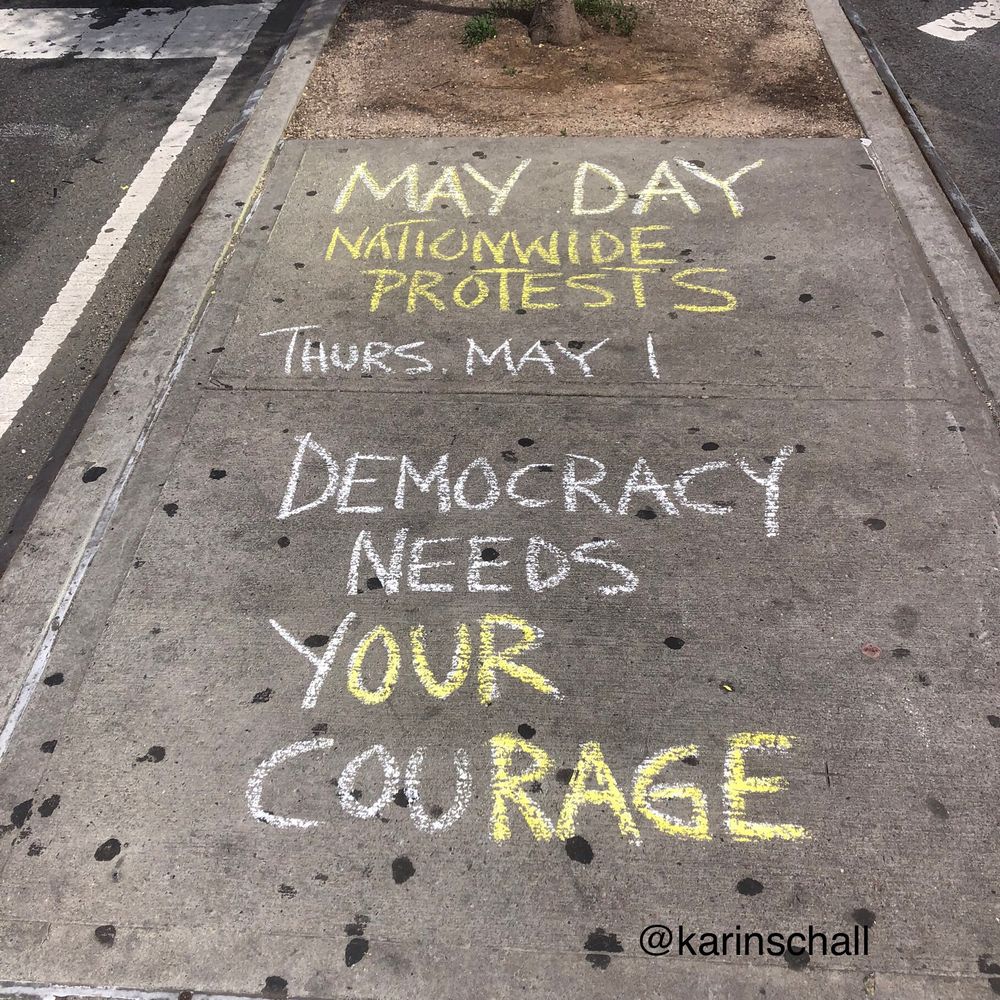 MAY DAY
NATIONWIDE
PROTESTS
THURS. MAY 1
DEMOCRACY
NEEDS
YOUR
COURAGE
@karinschall